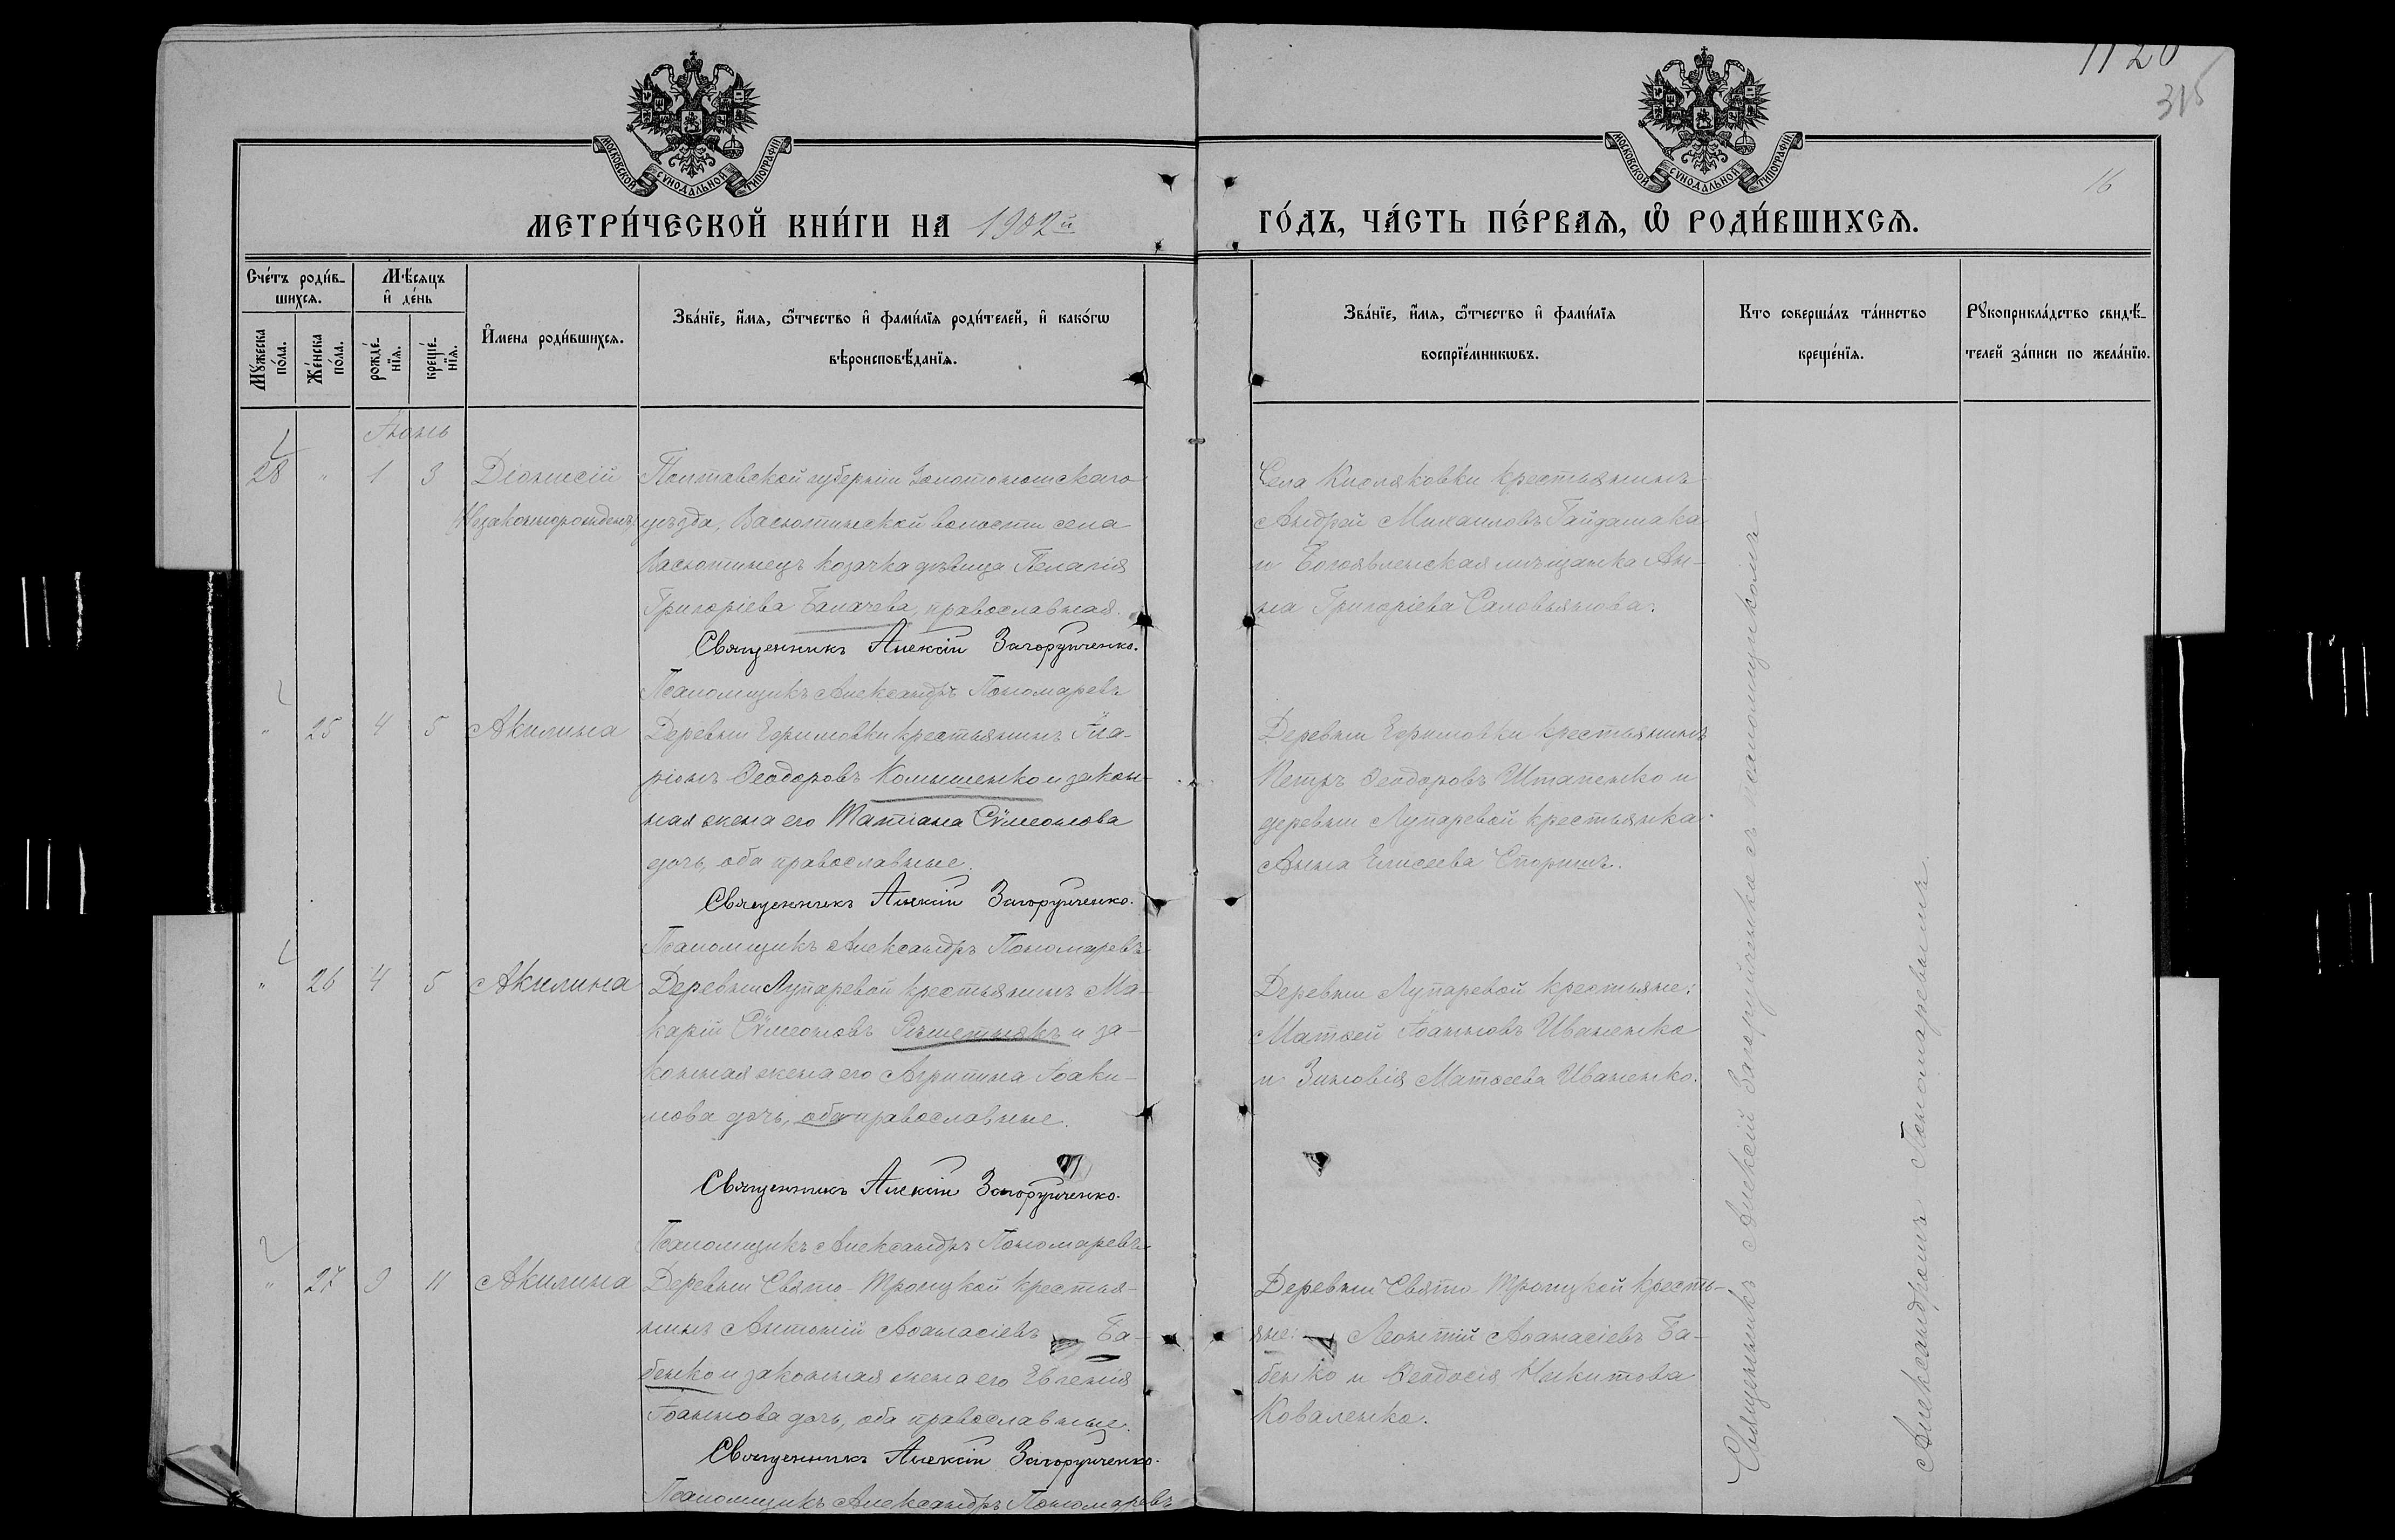 1120
315
16
МОСКОВСКОЙ СѴНОДАЛЬНОЙ ТИПОГРАФІИ
МОСКОВСКОЙ СѴНОДАЛЬНОЙ ТИПОГРАФІИ
МЕТРИ́ЧЕСКОЙ КНИ́ГИ НА 1902й
ГО́ДЪ, ЧА́СТЬ ПЕ́РВАѦ, Ѽ РОДИ́ВШИХСѦ.
Сче́тъ роди́в-
шихсѧ.
Мꙋжеска по́ла.
Же́нска по́ла.
Мѣ́сѧцъ
и҆ де́нь
рожде́-
нїѧ.
креще́-
нїѧ.
И҆мена роди́вшихсѧ.
Зва́нїе, и҆́мѧ, ѻ҆́тчество и҆ фами́лїѧ роди́телей, и҆ како́гѡ
вѣроисповѣ́данїѧ.
Зва́нїе, и҆́мѧ, ѻ҆́тчество и҆ фами́лїѧ
воспрїе́мникѡвъ.
Кто соверша́лъ та́инство
креще́нїѧ.
Рꙋкоприкла́дство свидѣ́-
телей за́писи по жела́нїю.
Іюнь
28 " 1 3 Діонисій
Незаконнорожденъ
Полтавской губерніи Золотоношскаго
уѣзда, Васютинской волости села
Васютинецъ козачка дѣвица Пелагія
Григоріева Балачева, православная.
Священникъ Алексій Загоруйченко.
Псаломщикъ Александръ Пономаревъ
Села Кисляковки крестьянинъ
Андрей Михаиловъ Гайдамака
и Богоявленская мѣщанка Ан-
на Григоріева Саловьянова.
" 25 4 5 Акилина
Деревни Ефимовки крестьянинъ Ила-
ріонъ Ѳеодоровъ Комышенко и закон-
ная жена его Татіана Сѵмеонова
дочь, оба православные.
Священникъ Алексій Загоруйченко.
Псаломщикъ Александръ Пономаревъ
Деревни Ефимовки крестьянинъ
Петръ Ѳеодоровъ Штапенко и
деревни Лупаревой крестьянка
Анна Елисеева Споришъ.
" 26 4 5 Акилина
Деревни Лупаревой крестьянинъ Ма-
карій Сѵмеоновъ Рѣшетнякъ и за-
конная жена его Агрипина Іоаки-
мова дочь, оба православные.
Священникъ Алексій Загоруйченко.
Псаломщикъ Александръ Пономаревъ
Деревни Лупаревой крестьяне:
Матѳей Іоанновъ Иваненко
и Зиновія Матѳеева Иваненко.
" 27 9 11 Акилина
Деревни Свято-Троицкой крестья-
нинъ Антоній Аѳанасіевъ Ба-
бенко и законная жена его Евгенія
Іоаннова дочь, оба православные.
Священникъ Алексій Загоруйченко.
Псаломщикъ Александръ Пономаревъ
Деревни Свято-Троицкой кресть-
яне: Леонтій Аѳанасіевъ Ба-
бенко и Ѳеодосія Никитова
Коваленко.
Священникъ Алексій Загоруйченко съ псаломщикомъ
Александромъ Пономаревымъ.